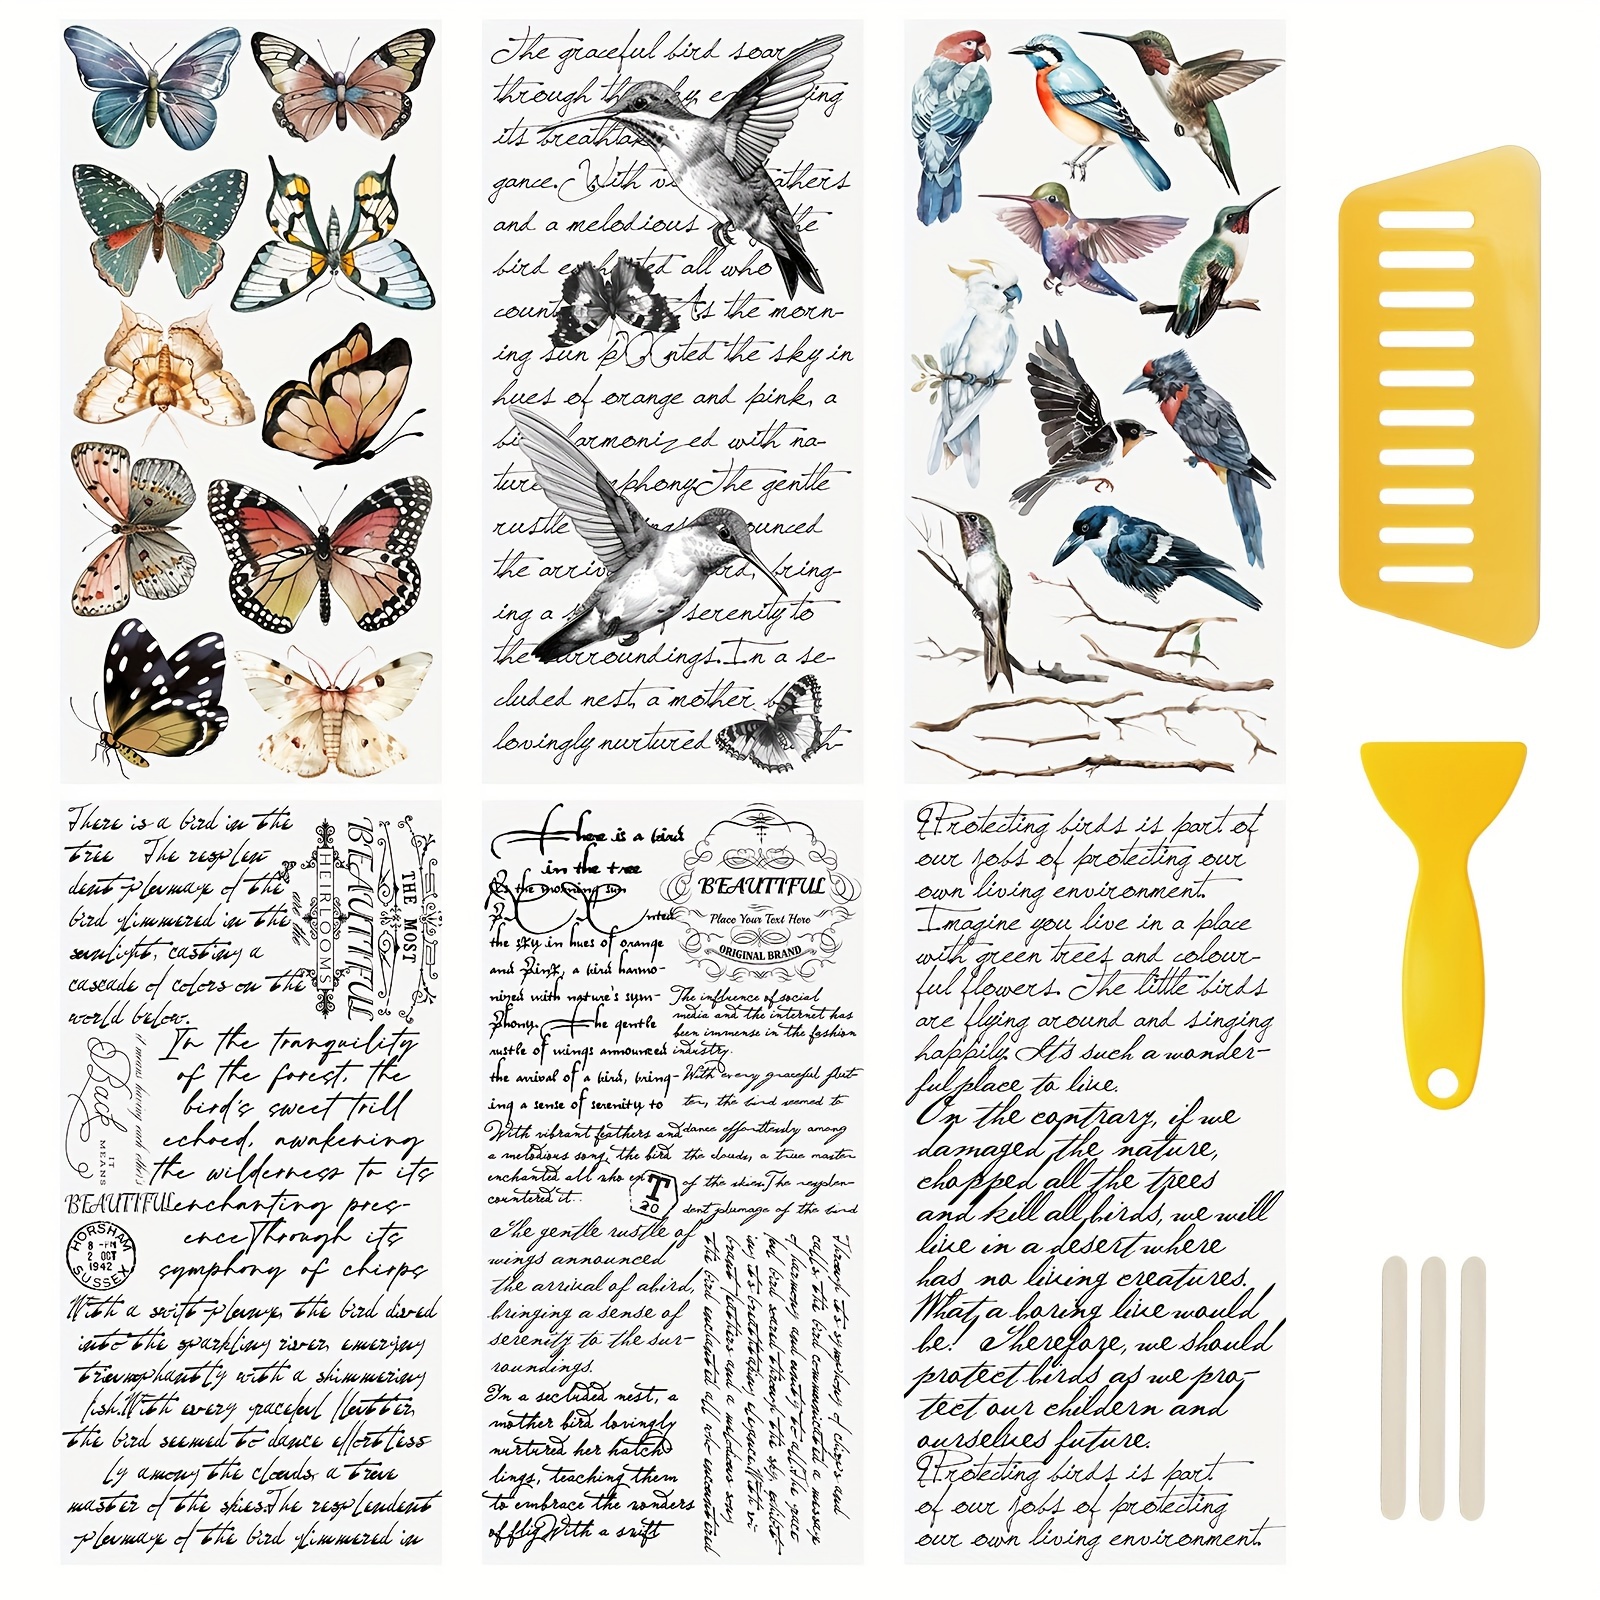 The graceful bird soar
through th
ing
its breathta
gance. With vi
athers
and a melodious
the
bird e
ted all who
count
As the morn-
ing sun p
nted the sky in
hues of orange and pink, a
bi
armonized with na-
ture
phony. The gentle
rustle
ings
ounced
the arriv
rd, bring-
ing a s
serenity to
the surroundings. In a se-
cluded nest, a mother b
lovingly nurtured
h-
There is a bird in the
tree The resplen-
dent plumage of the
bird glimmered in the
sunlight, casting a
cascade of colors on the
world below.
THE MOST
BEAUTIFUL
HEIRLOOMS
are the
In the tranquility
of the forest, the
bird's sweet trill
echoed, awakening
the wilderness to its
enchanting pres-
ence Through its
symphony of chirps
Back
IT
MEANS
BEAUTIFUL
HORSHAM
8 -PM
2 OCT
1942
SUSSEX
With a swift plunge, the bird dived
into the sparkling river, emerging
triumphantly with a shimmering
fish. With every graceful flutter,
the bird seemed to dance effortless
ly among the clouds, a true
master of the skies. The resplendent
plumage of the bird glimmered in
There is a bird
in the tree
As the morning sun
p
nted
the sky in hues of orange
and pink, a bird harmo-
nized with nature's sym-
phony. The gentle
rustle of wings announced
the arrival of a bird, bring-
ing a sense of serenity to
BEAUTIFUL
Place Your Text Here
ORIGINAL BRAND
The influence of social
media and the internet has
been immense in the fashion
industry.
With every graceful flut-
ter, the bird seemed to
dance effortlessly among
the clouds, a true master
of the skies. The resplen-
dent plumage of the bird
With vibrant feathers and
a melodious song, the bird
enchanted all who en
countered it.
T
20
The gentle rustle of
wings announced
the arrival of a bird,
bringing a sense of
serenity to the sur-
roundings.
In a secluded nest, a
mother bird lovingly
nurtured her hatch
lings, teaching them
to embrace the wonders
of flig With a swift
Through its symphony of chirps and
calls, the bird communicated a message
of harmony and unity to all. The grace
ful bird soared through the sky, exhibit-
ing its breathtaking elegance. With vi-
brant feathers and a melodious song
the bird enchanted all who encountered
Protecting birds is part of
our jobs of protecting our
own living environment.
Imagine you live in a place
with green trees and colour-
ful flowers. The little birds
are flying around and singing
happily. It's such a wonder-
ful place to live.
On the contrary, if we
damaged the nature,
chopped all the trees
and kill all birds, we will
live in a desert where
has no living creatures.
What a boring live would
be! Therefore, we should
protect birds as we pro-
tect our childern and
ourselves future.
Protecting birds is part
of our jobs of protecting
our own living environment.